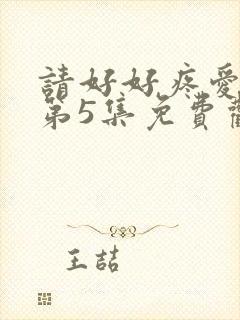 請好好疼愛
第5集免費
王喆